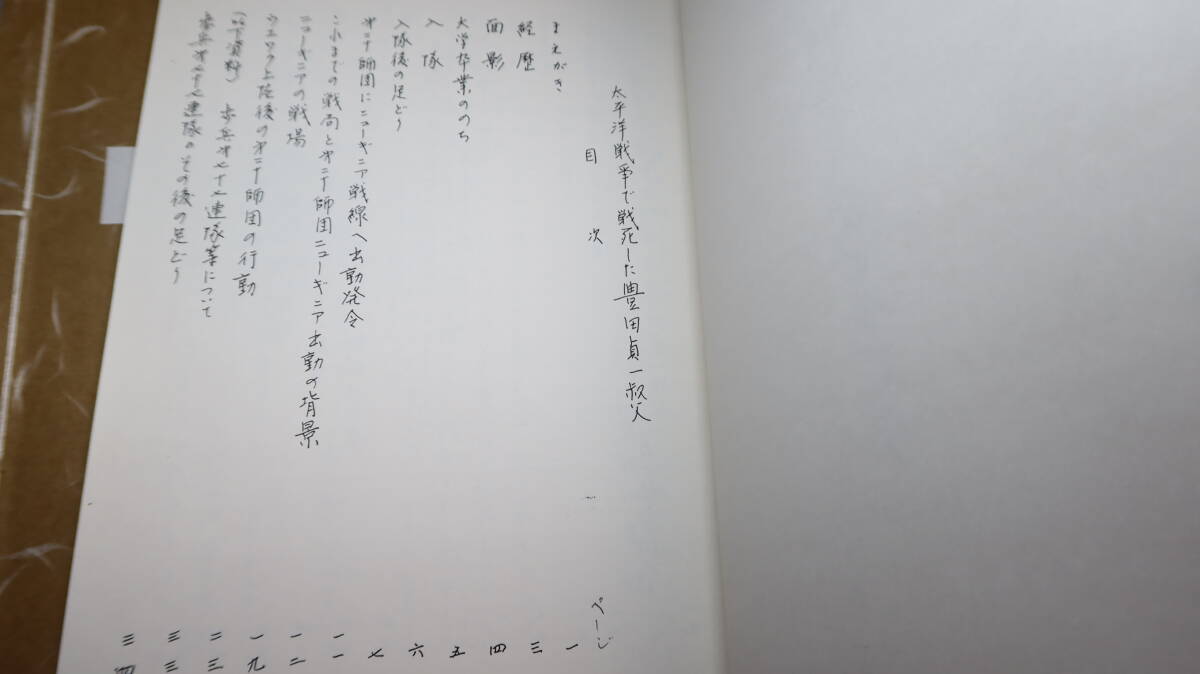 太平洋戦争で戦死した豊田貞一叔父
目次
ページ
まえがき 一
経歴 三
面影 四
大学卒業ののち 五
入隊 六
入隊後の足どり 七
第二十師団にニューギニア戦線へ出動発令 一一
これまでの戦局と第二十師団ニューギニア出動の背景 一二
ニューギニアの戦場 一九
ウエワク上陸後の第二十師団の行動 二三
(以下資料) 歩兵第七十七連隊等について 三三
歩兵第七十七連隊のその後の足どり 三四